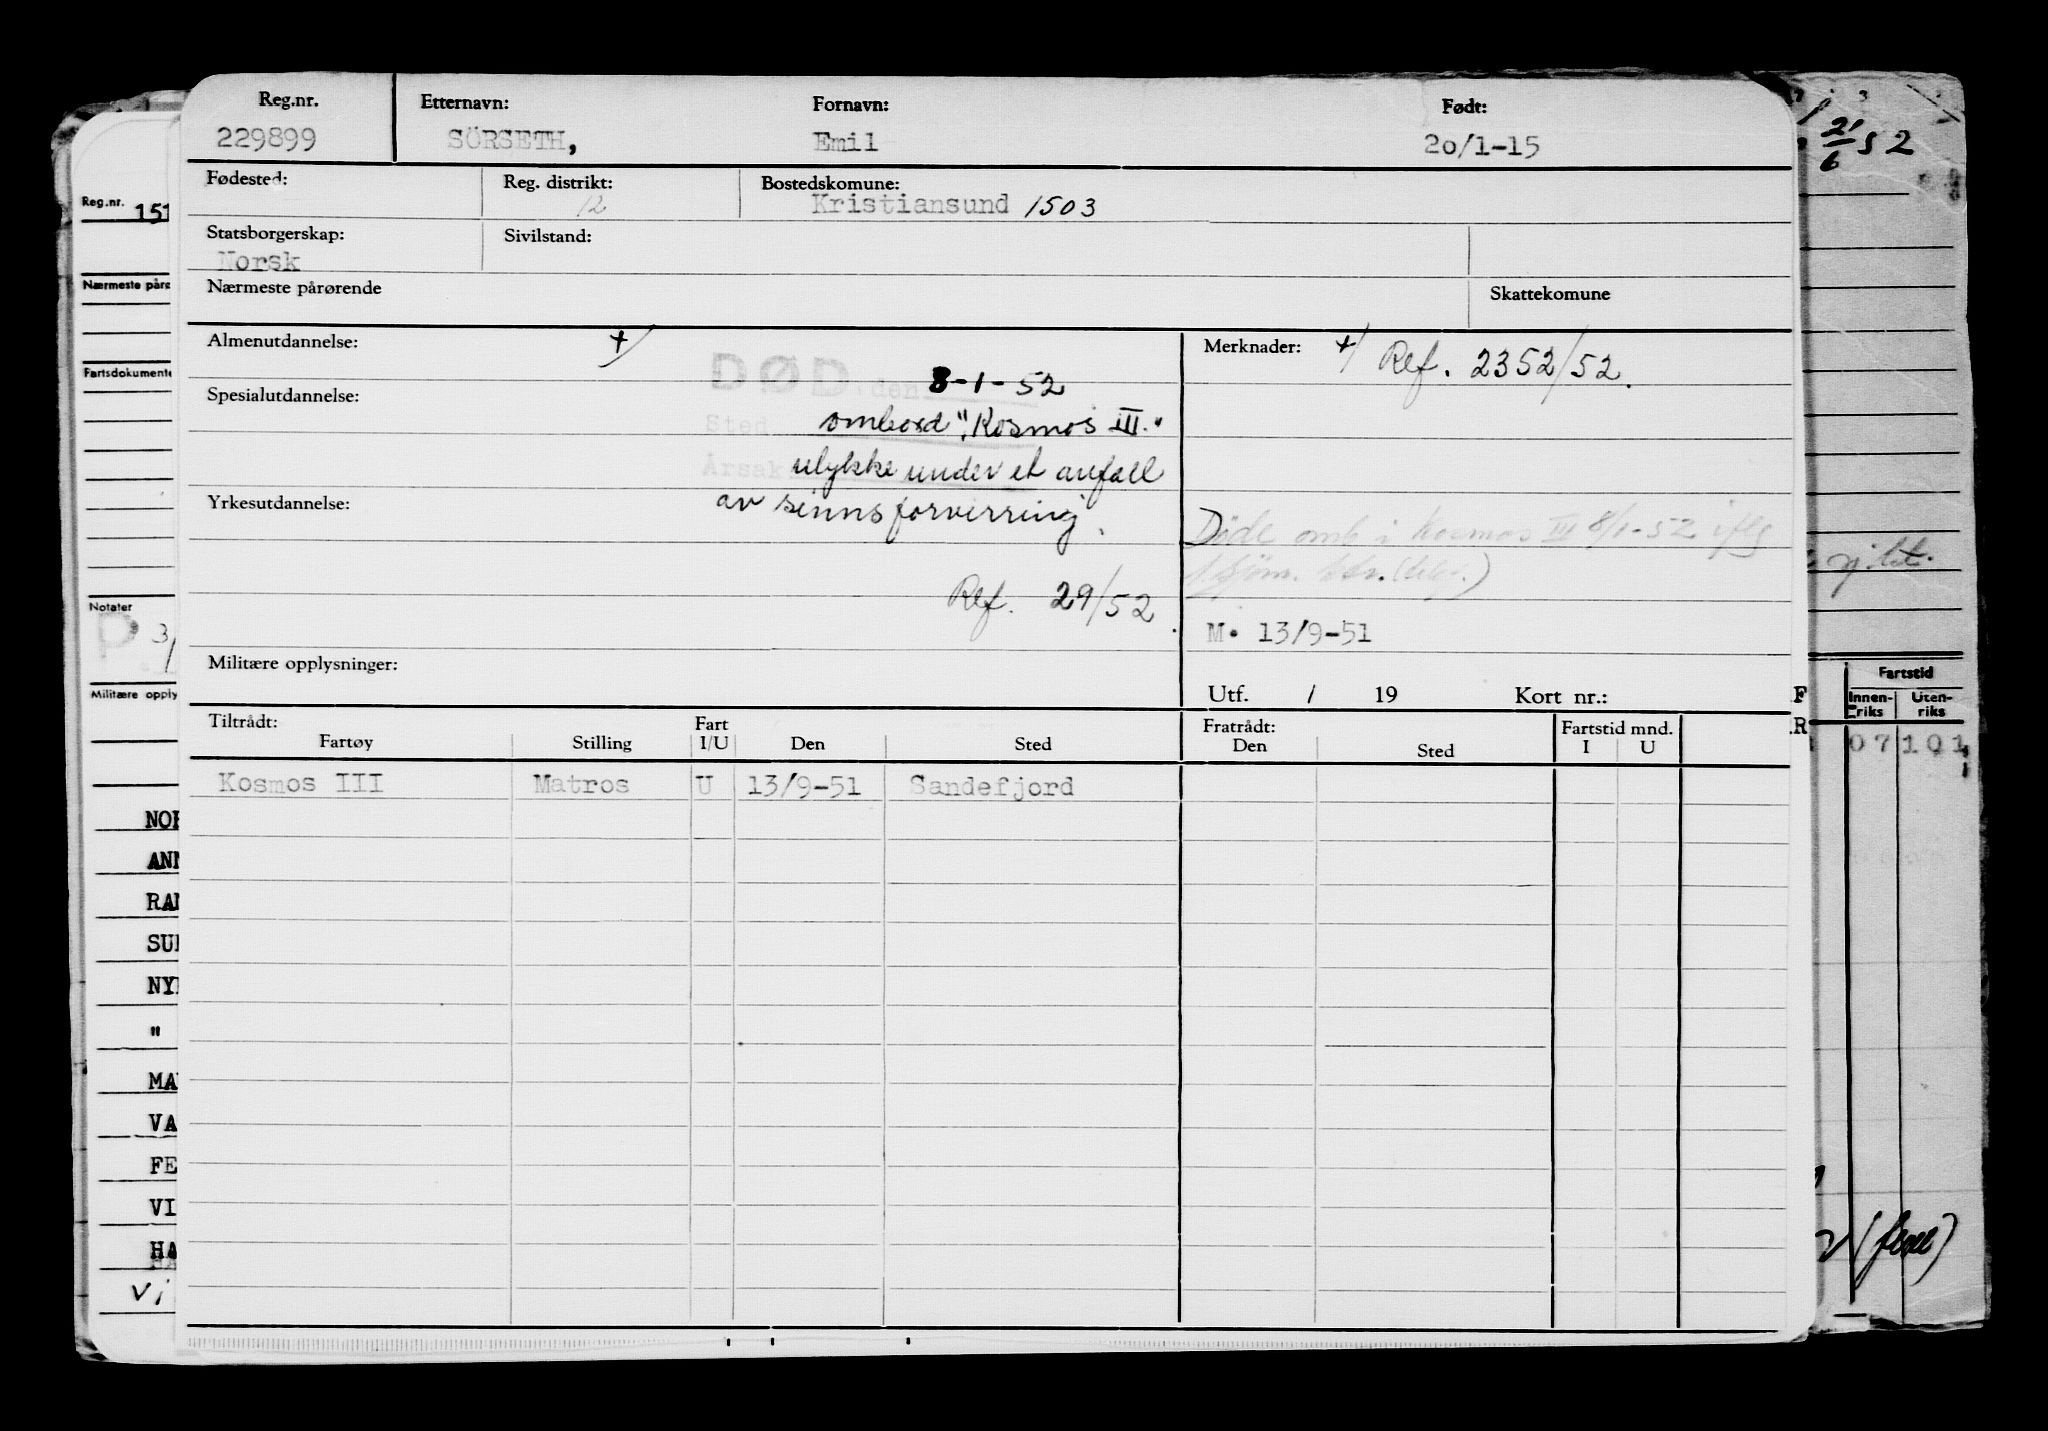 Reg.nr. Etternavn: Fornavn: Født:
229899 SÖRSETH, Emil 2o/1-15
Fødested: Reg. distrikt: Bostedskomune:
12 Kristiansund 1503
Statsborgerskap: Sivilstand:
Norsk
Nærmeste pårørende Skattekomune
Almenutdannelse: +/ Merknader: +/ Ref. 2352/52.
DØD, den 8-1-52
Spesialutdannelse:
Sted ombord "Kosmos III."
Årsak ulykke under et anfall
Yrkesutdannelse: av sinnsforvirring.
Döde omb i Kosmos III 8/1-52 iflg
Ref. 29/52.
M. 13/9-51
Militære opplysninger:
Utf. / 19 Kort nr.:
Tiltrådt: Fart Fratrådt: Fartstid mnd.
Fartøy Stilling I/U Den Sted Den Sted I U
Kosmos III Matros U 13/9-51 Sandefjord
Reg.nr. 151
Nærmeste påre
Fartsdokumente
Notater
P 3/
Militære opply
NOR
ANN
RAN
SUN
NY
"
MA
VA
FE
VI
HA
Vi
21/6 52
Fartstid
Innen-riks Uten-riks
07 101
F
R